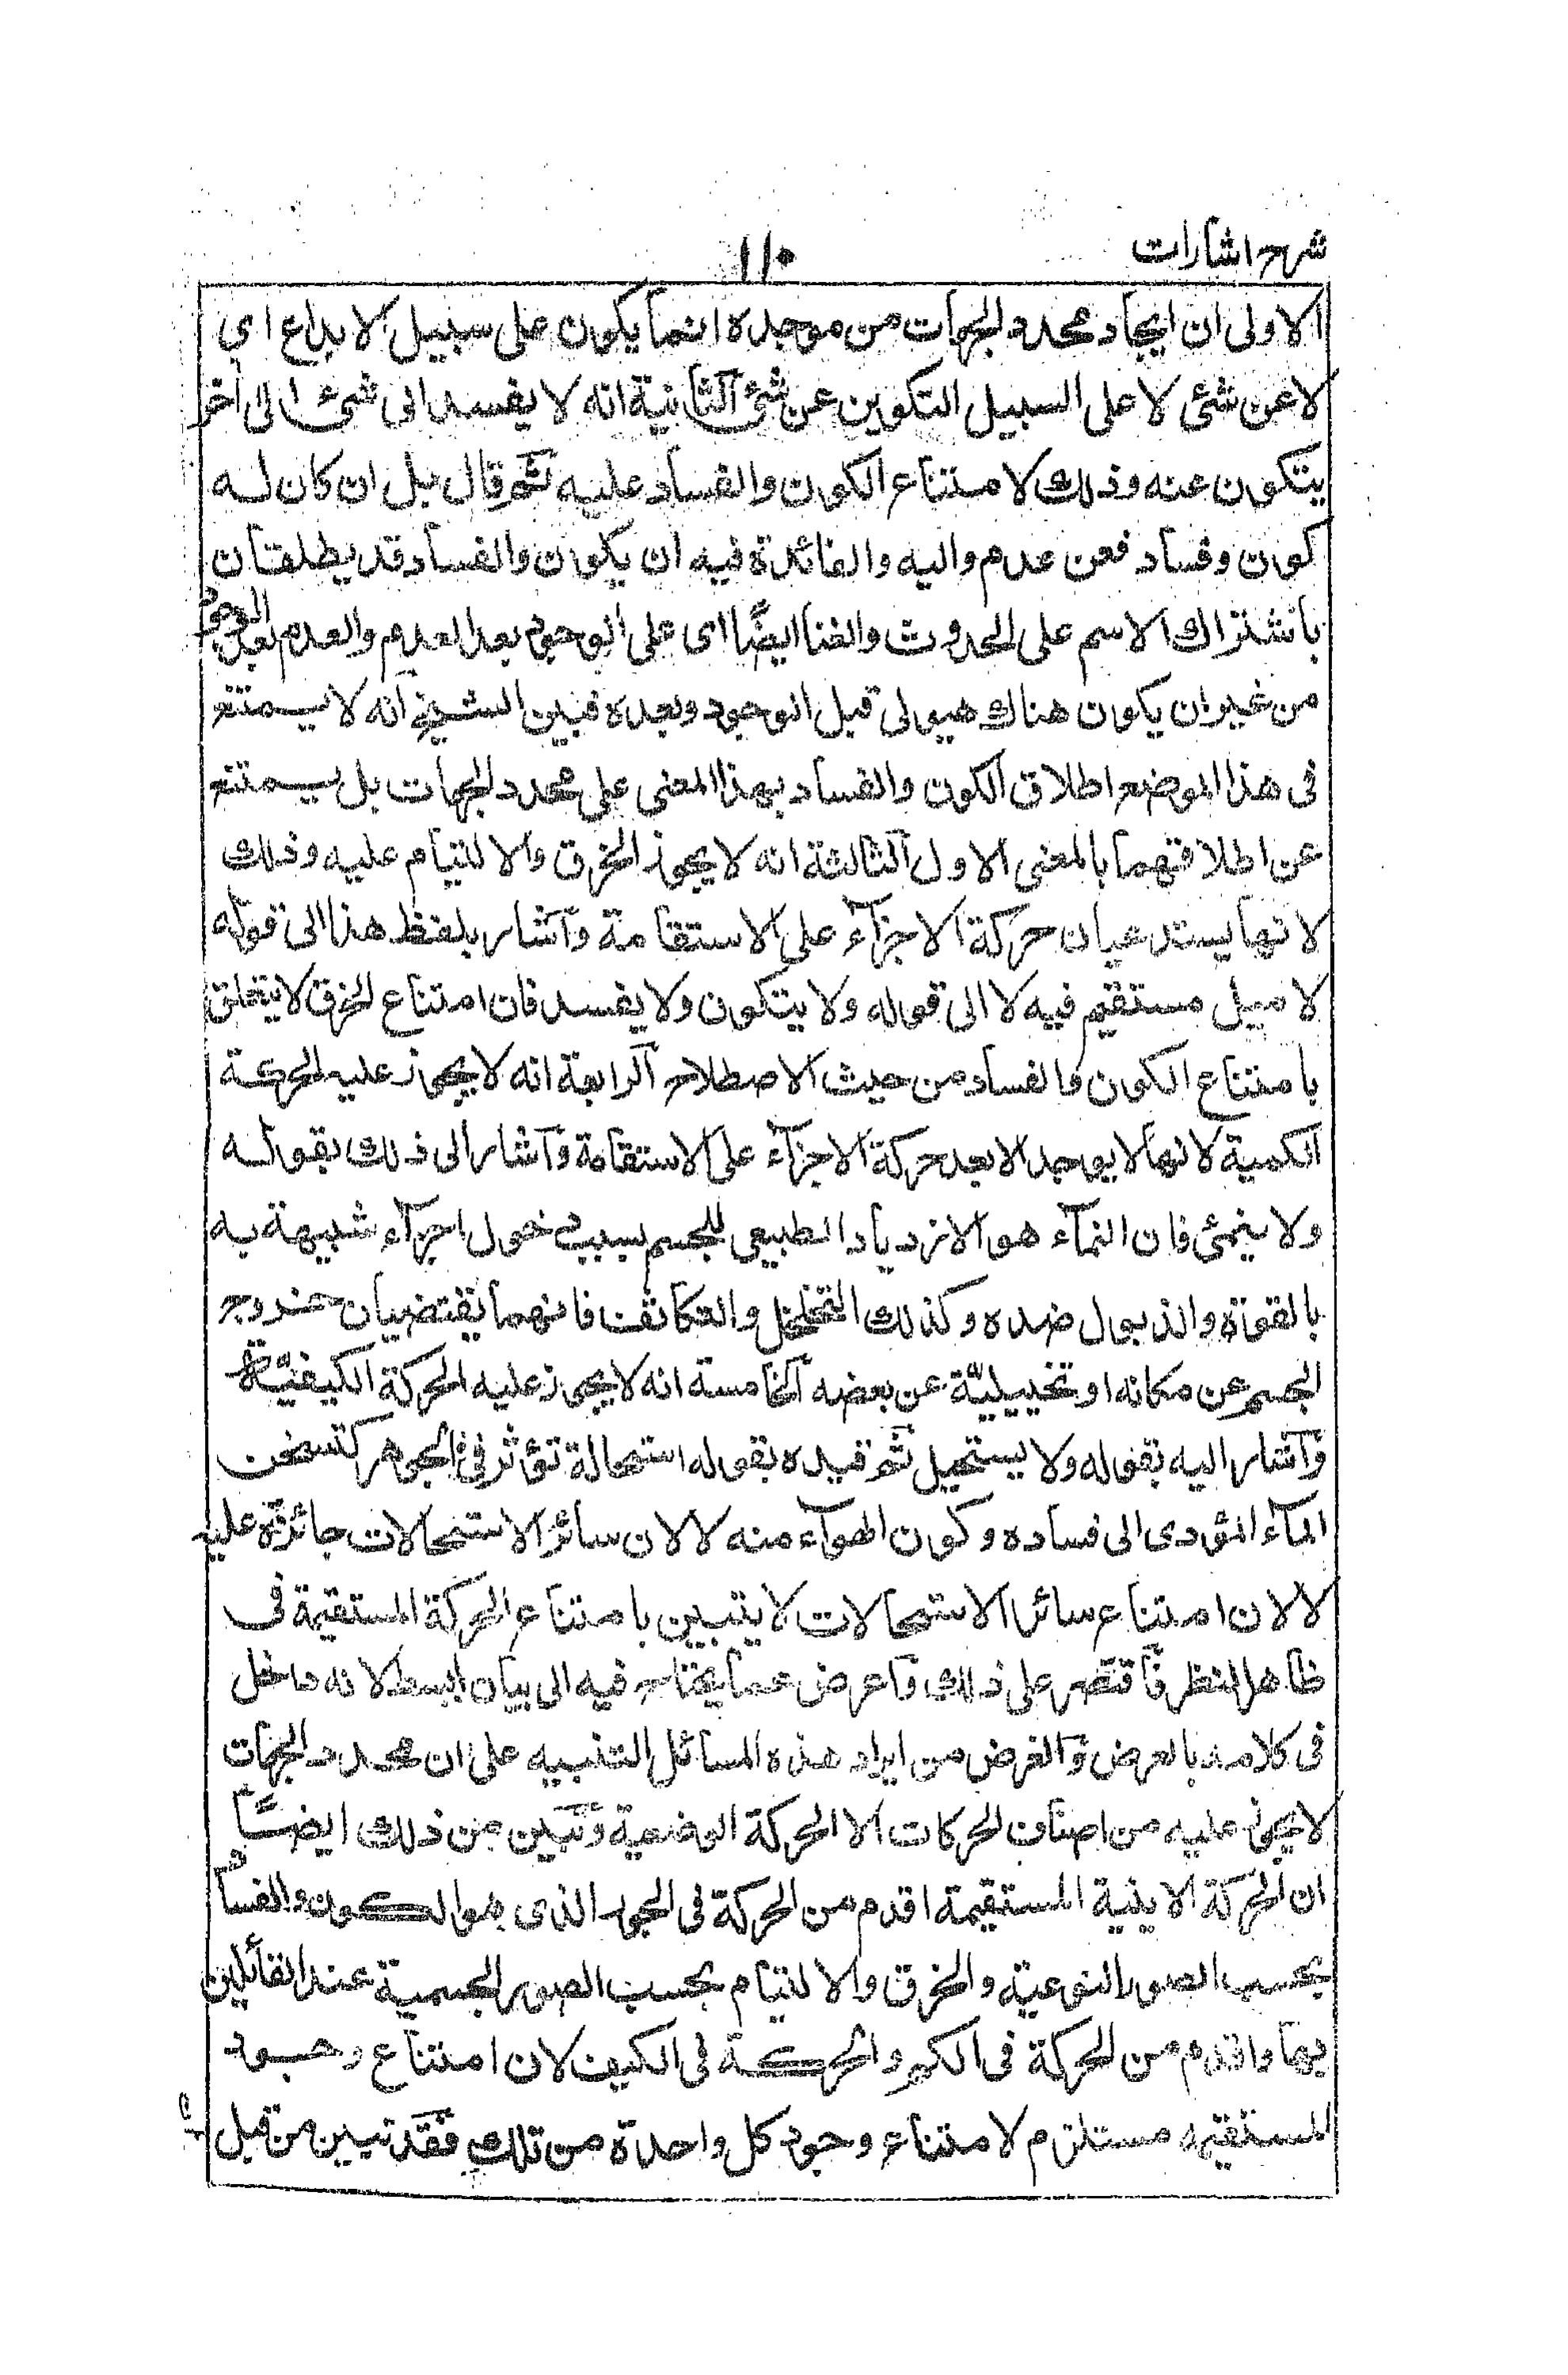 شرح اشارات
١١٠
الاولى ان ايجاد محدد الجهات من موجده انما يكون على سبيل الابداع اى
لا عن شئ لا على السبيل التكوين عن شئ الثانية انه لا يفسد الى شئ اخر
يتكون عنه وذلك لامتناع الكون والفساد عليه ثم قال بل ان كان له
كون وفساد فعن عدم واليه والفائدة فيه ان يكون والفساد قد يطلقان
باشتراك الاسم على الحدوث والفنا ايضًا اى على الوجود بعد العدم والعدم بعد الوجود
من غير ان يكون هناك هيولى قبل الوجود وبعده فبين الشيخ انه لا يمتنع
فى هذا الموضع اطلاق الكون والفساد بهذا المعنى على محدد الجهات بل يمتنع
عن اطلاقهما بالمعنى الاول الثالثة انه لا يجوز الخرق والالتيام عليه وذلك
لانها يستدعيان حركة الاجزآء على الاستقامة وآشار بلفظ هذا الى قوله
لا ميل مستقيم فيه لا الى قوله ولا يتكون ولا يفسد فان امتناع الخرق لا يتعلق
بامتناع الكون والفساد من حيث الاصطلاح الرابعة انه لا يجوز عليه الحركة
الكمية لانها لا يوجد الا بعد حركة الاجزآء على الاستقامة وآشار الى ذلك بقوله
ولا ينمئ فان النمآء هو الازدياد الطبيعى للجسم بسبب دخول اجزآء شبيهة به
بالقوة والذبول ضده وكذلك التخلخل والتكاثف فانهما يقتضيان خروج
الجسم عن مكانه او تخييليّة عن بعضه الخامسة انه لا يجوز عليه الحركة الكيفيّة
وآشار اليه بقوله ولا يستحيل ثم قيده بقوله استحالة تؤثر فى الجوهر كتسخن
المآء المؤدى الى فساده وكون الهوآء منه لا لان سائر الاستحالات جائزة عليه
لا لان امتناع سائر الاستحالات لا يتبين بامتناع الحركة المستقيمة فى
ظاهر النظر فاقتصر على ذلك واعرض عما يحتاج فيه الى بيان ابسط لانه داخل
فى كلامه بالعرض والغرض من ايراد هذه المسائل التنبيه على ان محدد الجهات
لا يجوز عليه من اصناف الحركات الا الحركة الوضعية وتبين من ذلك ايضًا
ان الحركة الاينية المستقيمة اقدم من الحركة فى الجوهر الذى هو الكون والفساد
بحسب الصور النوعية والخرق والالتيام بحسب الصور الجسمية عند القائلين
بها واقدم من الحركة فى الكم والحركة فى الكيف لان امتناع وجود
المستقيمه مستلزم لامتناع وجود كل واحدة من تلك فقد تبين من قبل